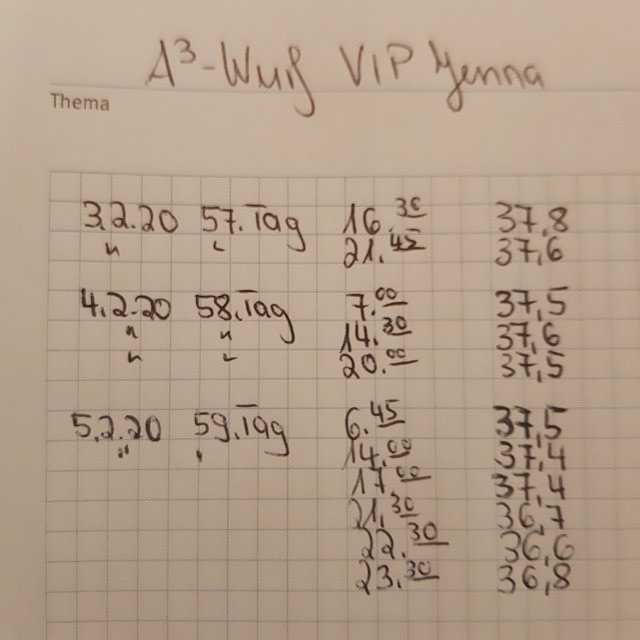 A³-Wurf VIP Yenna
Thema
3.2.20 57.Tag 16.30 37,8
" " 21.45 37,6
4.2.20 58.Tag 7.00 37,5
" " 14.30 37,6
" " 20.00 37,5
5.2.20 59.Tag 6.45 37,5
" " 14.00 37,4
17.00 37,4
21.30 36,7
22.30 36,6
23.30 36,8